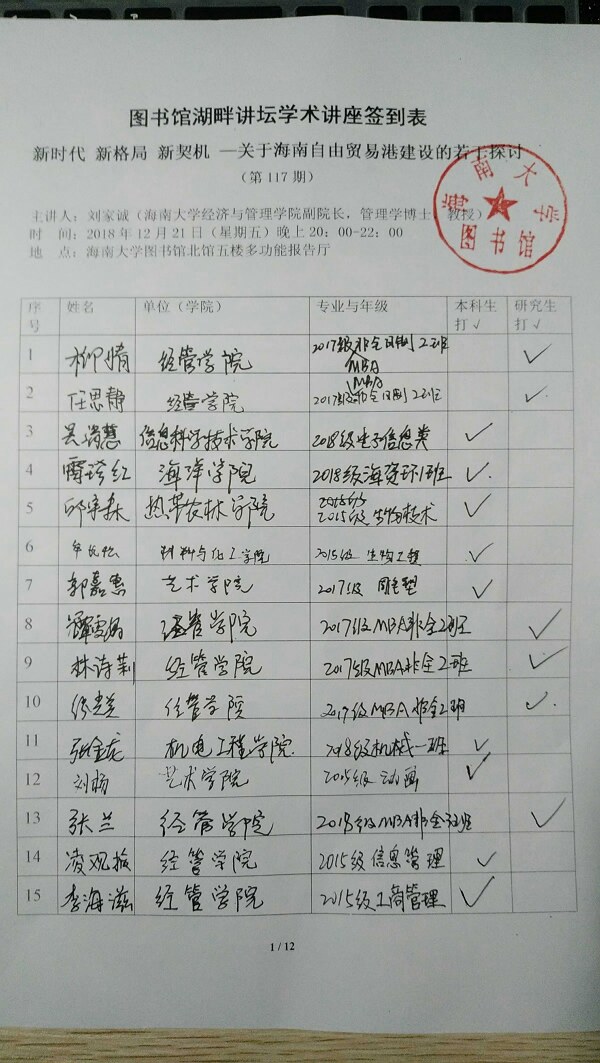 图书馆湖畔讲坛学术讲座签到表
新时代 新格局 新契机 —关于海南自由贸易港建设的若干探讨
（第 117 期）
主讲人：刘家诚（海南大学经济与管理学院副院长，管理学博士、教授）
时 间：2018 年 12 月 21 日（星期五）晚上 20：00-22：00
地 点：海南大学图书馆北馆五楼多功能报告厅
海南大学
图书馆
序号 姓名 单位（学院） 专业与年级 本科生打√ 研究生打√
1 柳情 经管学院 2017级非全日制2班 MBA √
2 任思静 经管学院 MBA 2017级非全日制2班 √
3 吴瑞慧 信息科学技术学院 2018级电子信息类 √
4 海洋学院 2018级海资环1班 √
5 热带农林学院 2015级生物技术 √
6 材料与化工学院 2015级 生物工程 √
7 郭嘉惠 艺术学院 2017级 √
8 经管学院 2017级MBA非全2班 √
9 林诗莉 经管学院 2017级MBA非全2班 √
10 经管学院 2017级MBA非全2班 √
11 张金龙 机电工程学院 2018级机械一班 √
12 刘杨 艺术学院 2015级 动画 √
13 张兰 经管学院 2018级MBA非全班 √
14 凌观 经管学院 2015级信息管理 √
15 李海滋 经管学院 2015级工商管理 √
1 / 12